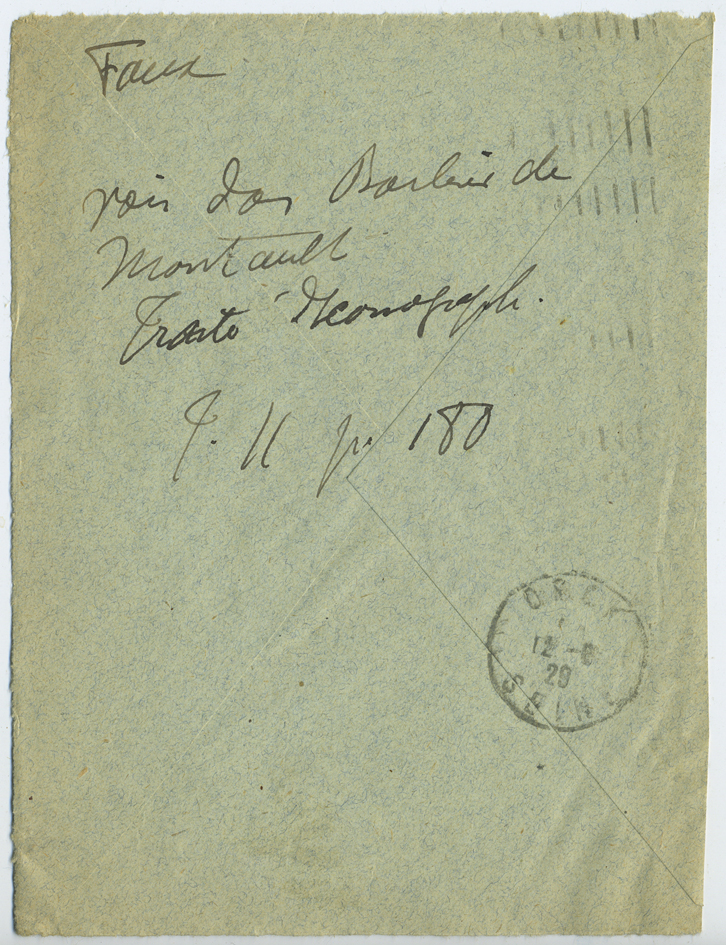 Faux
voir dans Barbier de
Montault
Traité Iconograph.
T. II p. 180
ORLY
12 -8
29
SEINE